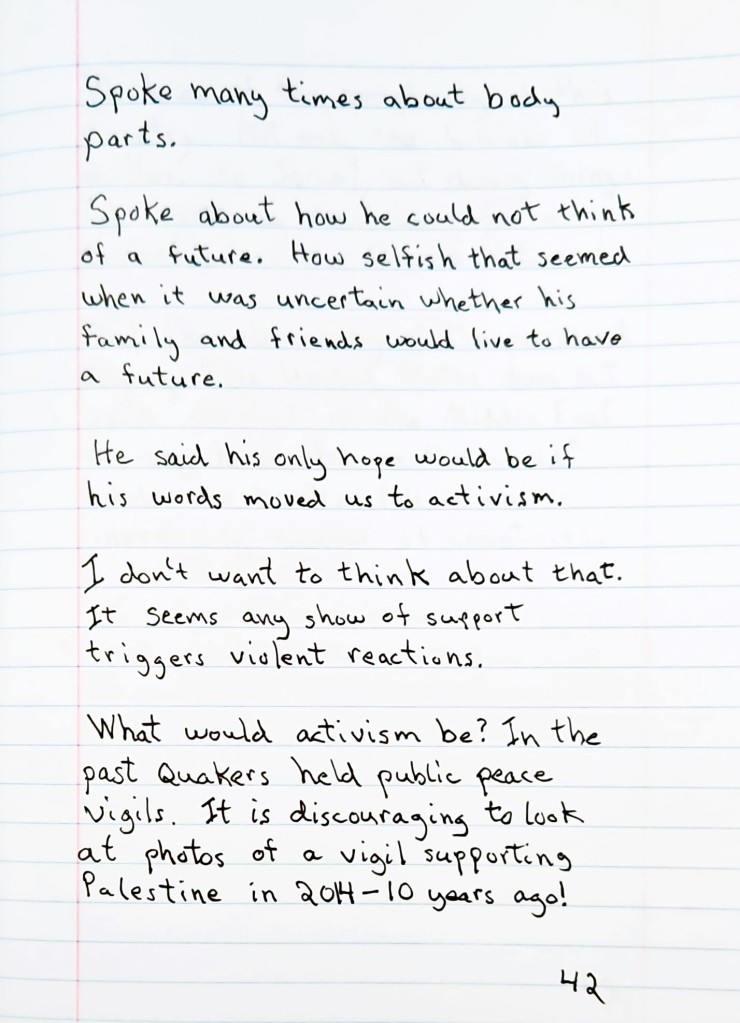 Spoke many times about body
parts.
Spoke about how he could not think
of a future. How selfish that seemed
when it was uncertain whether his
family and friends would live to have
a future.
He said his only hope would be if
his words moved us to activism.
I don't want to think about that.
It seems any show of support
triggers violent reactions.
What would activism be? In the
past Quakers held public peace
vigils. It is discouraging to look
at photos of a vigil supporting
Palestine in 2014-10 years ago!
42